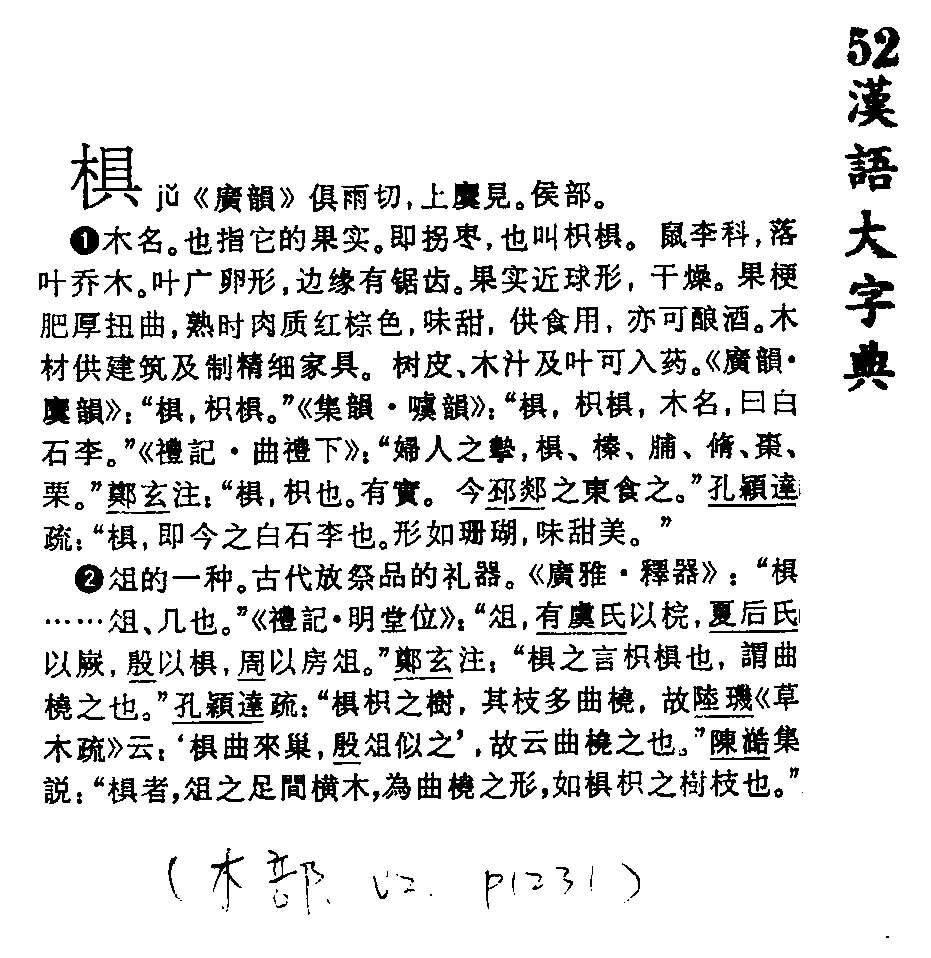 52漢語大字典
椇 jǔ《廣韻》俱雨切,上麌見。侯部。
❶木名。也指它的果实。即拐枣,也叫枳椇。鼠李科,落
叶乔木。叶广卵形,边缘有锯齿。果实近球形,干燥。果梗
肥厚扭曲,熟时肉质红棕色,味甜,供食用,亦可酿酒。木
材供建筑及制精细家具。树皮、木汁及叶可入药。《廣韻·
麌韻》:“椇,枳椇。”《集韻·噳韻》:“椇,枳椇,木名,曰白
石李。”《禮記·曲禮下》:“婦人之摯,椇、榛、脯、脩、棗、
栗。”鄭玄注:“椇,枳也。有實。今邳郯之東食之。”孔穎達
疏:“椇,即今之白石李也。形如珊瑚,味甜美。”
❷俎的一种。古代放祭品的礼器。《廣雅·釋器》:“椇
……俎、几也。”《禮記·明堂位》:“俎,有虞氏以梡,夏后氏
以嶡,殷以椇,周以房俎。”鄭玄注:“椇之言枳椇也,謂曲
橈之也。”孔穎達疏:“椇枳之樹,其枝多曲橈,故陸璣《草
木疏》云:‘椇曲來巢,殷俎似之’,故云曲橈之也。”陳澔集
説:“椇者,俎之足間横木,為曲橈之形,如椇枳之樹枝也。”
(木部. V2. P1231)